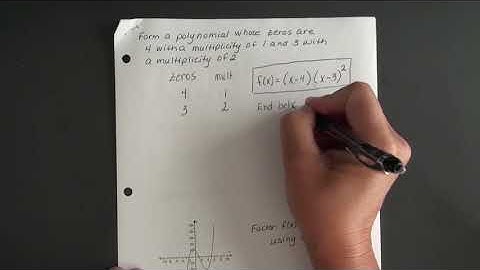 Form a polynomial whose zeros are
4 with a multiplicity of 1 and 3 with
a multiplicity of 2
zeros mult
4 1
3 2
f(x) = (x-4)(x-3)²
End beh
Factor f(x)
using